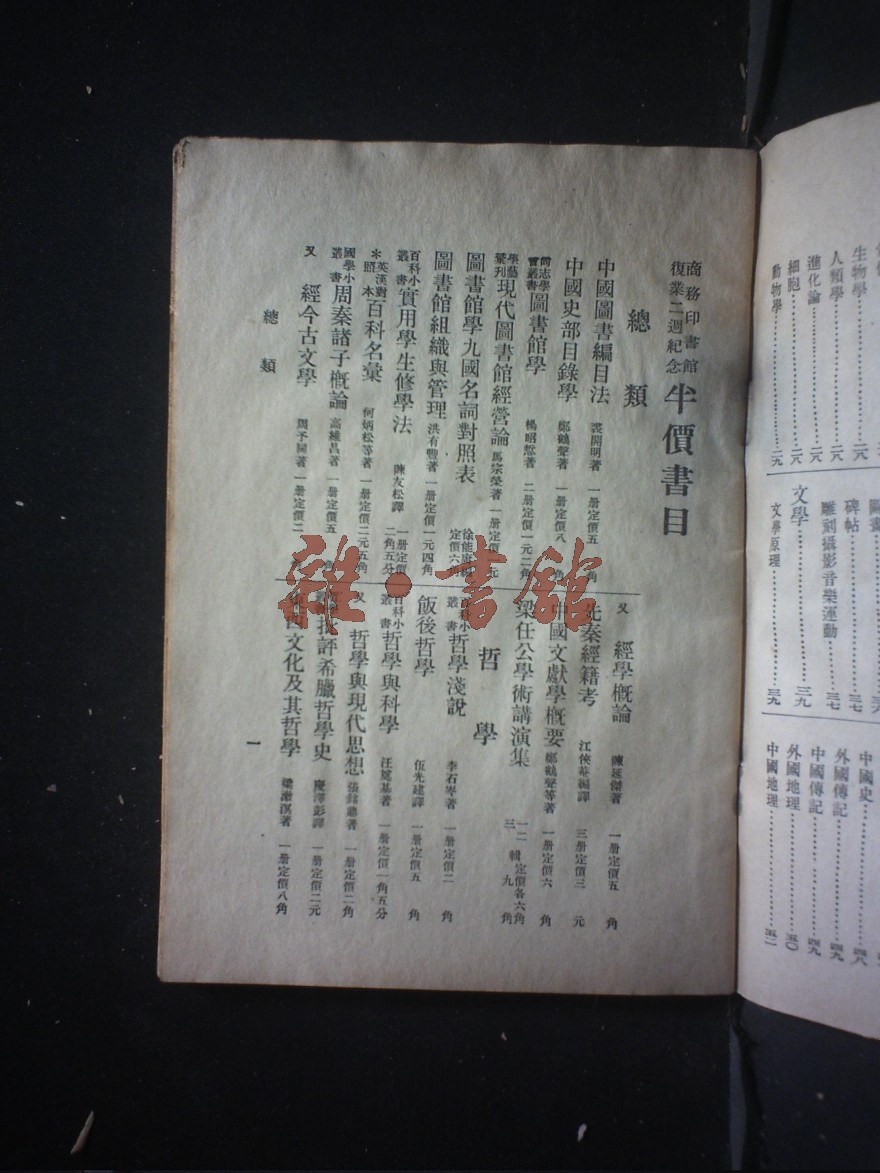 商務印書館
復業二週紀念
半價書目
總類
中國圖書編目法 裘開明著 一册定價五角
中國史部目錄學 鄭鶴聲著 一册定價八角
尚志學會叢書 圖書館學 楊昭悊著 二册定價一元二角
學藝彙刊 現代圖書館經營論 馬宗榮著 一册定價元
圖書館學九國名詞對照表 徐能庸編 定價六角
圖書館組織與管理 洪有豐著 一册定價一元四角
百科小叢書 實用學生修學法 陳友松譯 一册定價二角五分
*英漢對照本 百科名彙 何炳松等著 一册定價二元五角
國學小叢書 周秦諸子概論 高維昌著 一册定價五角
又 經今古文學 周予同著 一册定價二
又 經學概論 陳延傑著 一册定價五角
先秦經籍考 江俠菴編譯 三册定價三元
中國文獻學概要 鄭鶴聲等著 一册定價六角
梁任公學術講演集 一二輯定價各六角 三輯九角
哲學
百科小叢書 哲學淺說 李石岑著 一册定價二角
飯後哲學 伍光建譯 一册定價五角
百科小叢書 哲學與科學 汪奠基著 一册定價一角五分
又 哲學與現代思想 張銘鼎著 一册定價二角
批評希臘哲學史 慶澤彭譯 一册定價二元
東西文化及其哲學 梁漱溟著 一册定價八角
總類
一
雜·書館
生物學 二八
人類學 二八
進化論 二八
細胞 二八
動物學 二九
碑帖 三七
雕刻攝影音樂運動 三七
文學 三九
文學原理 三九
中國史 四八
外國傳記 四九
中國傳記 四九
外國地理 五〇
中國地理 五二